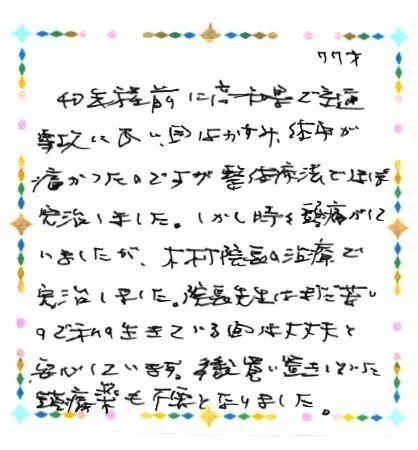 77才
四年程前に高知県で交通
事故にあい、目はかすみ、後頭が
痛かったのですが整体療法でほぼ
完治しました。しかし時々頭痛がして
いましたが、木村院長の治療で
完治しました。院長先生はまだ若い
ので私の生きている間は大丈夫と
安心しています。買い置きしていた
頭痛薬も不要となりました。